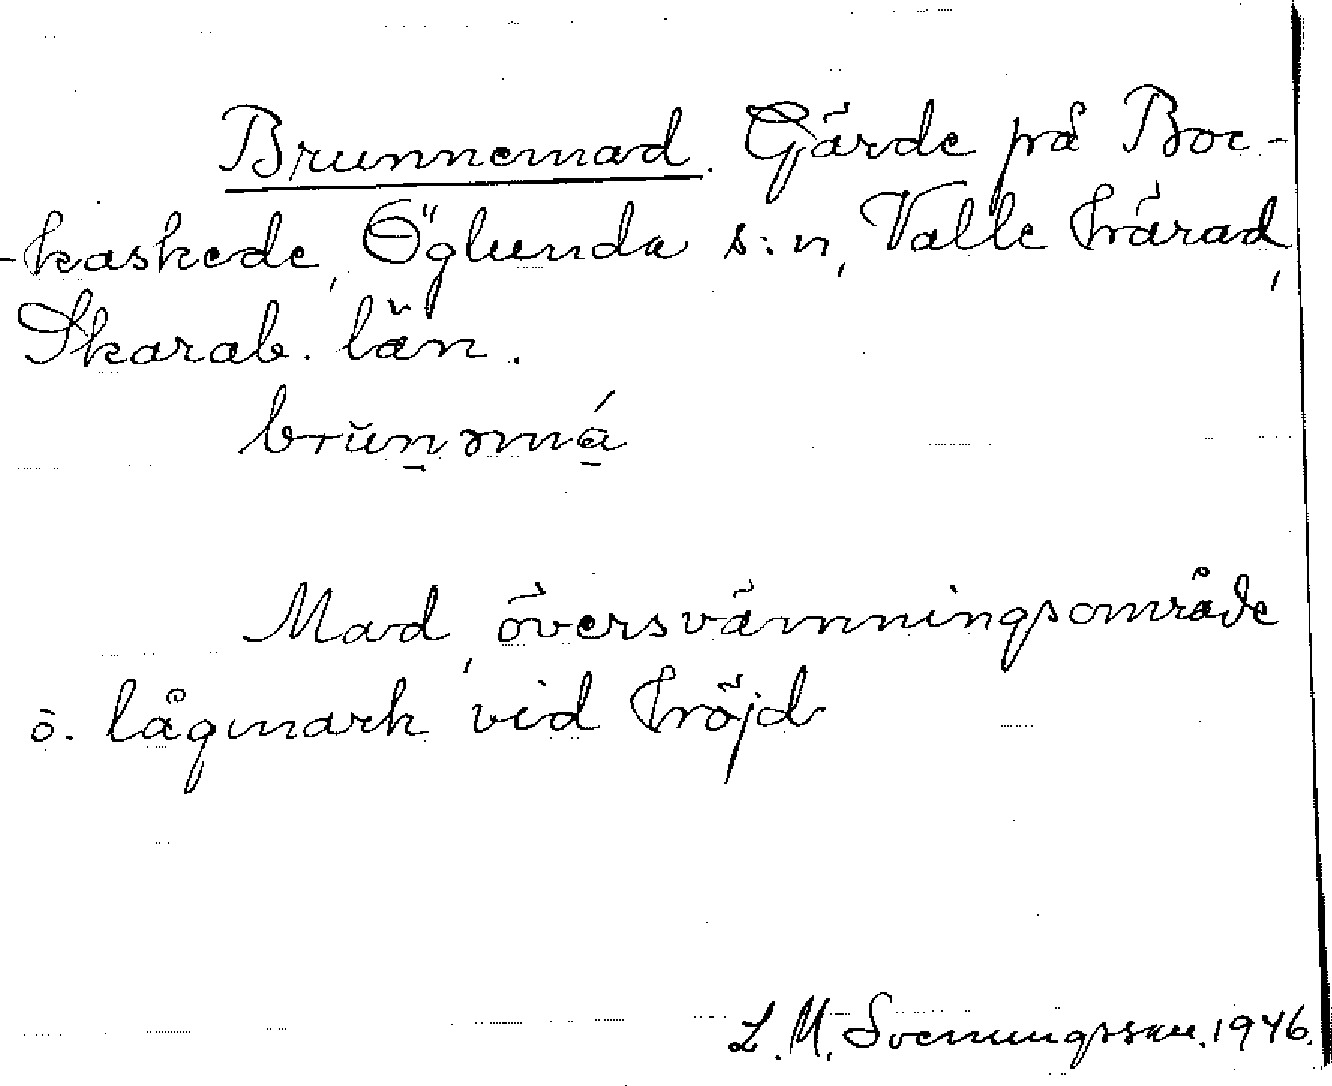 Brunnemad. Gärde på Boc-
-kaskede, Öglunda s:n, Valle härad,
Skarab. län.
brŭn̠əmá̠
Mad, översvämningsområde
o. lågmark vid höjd
L. M. Svenungsson. 1946.